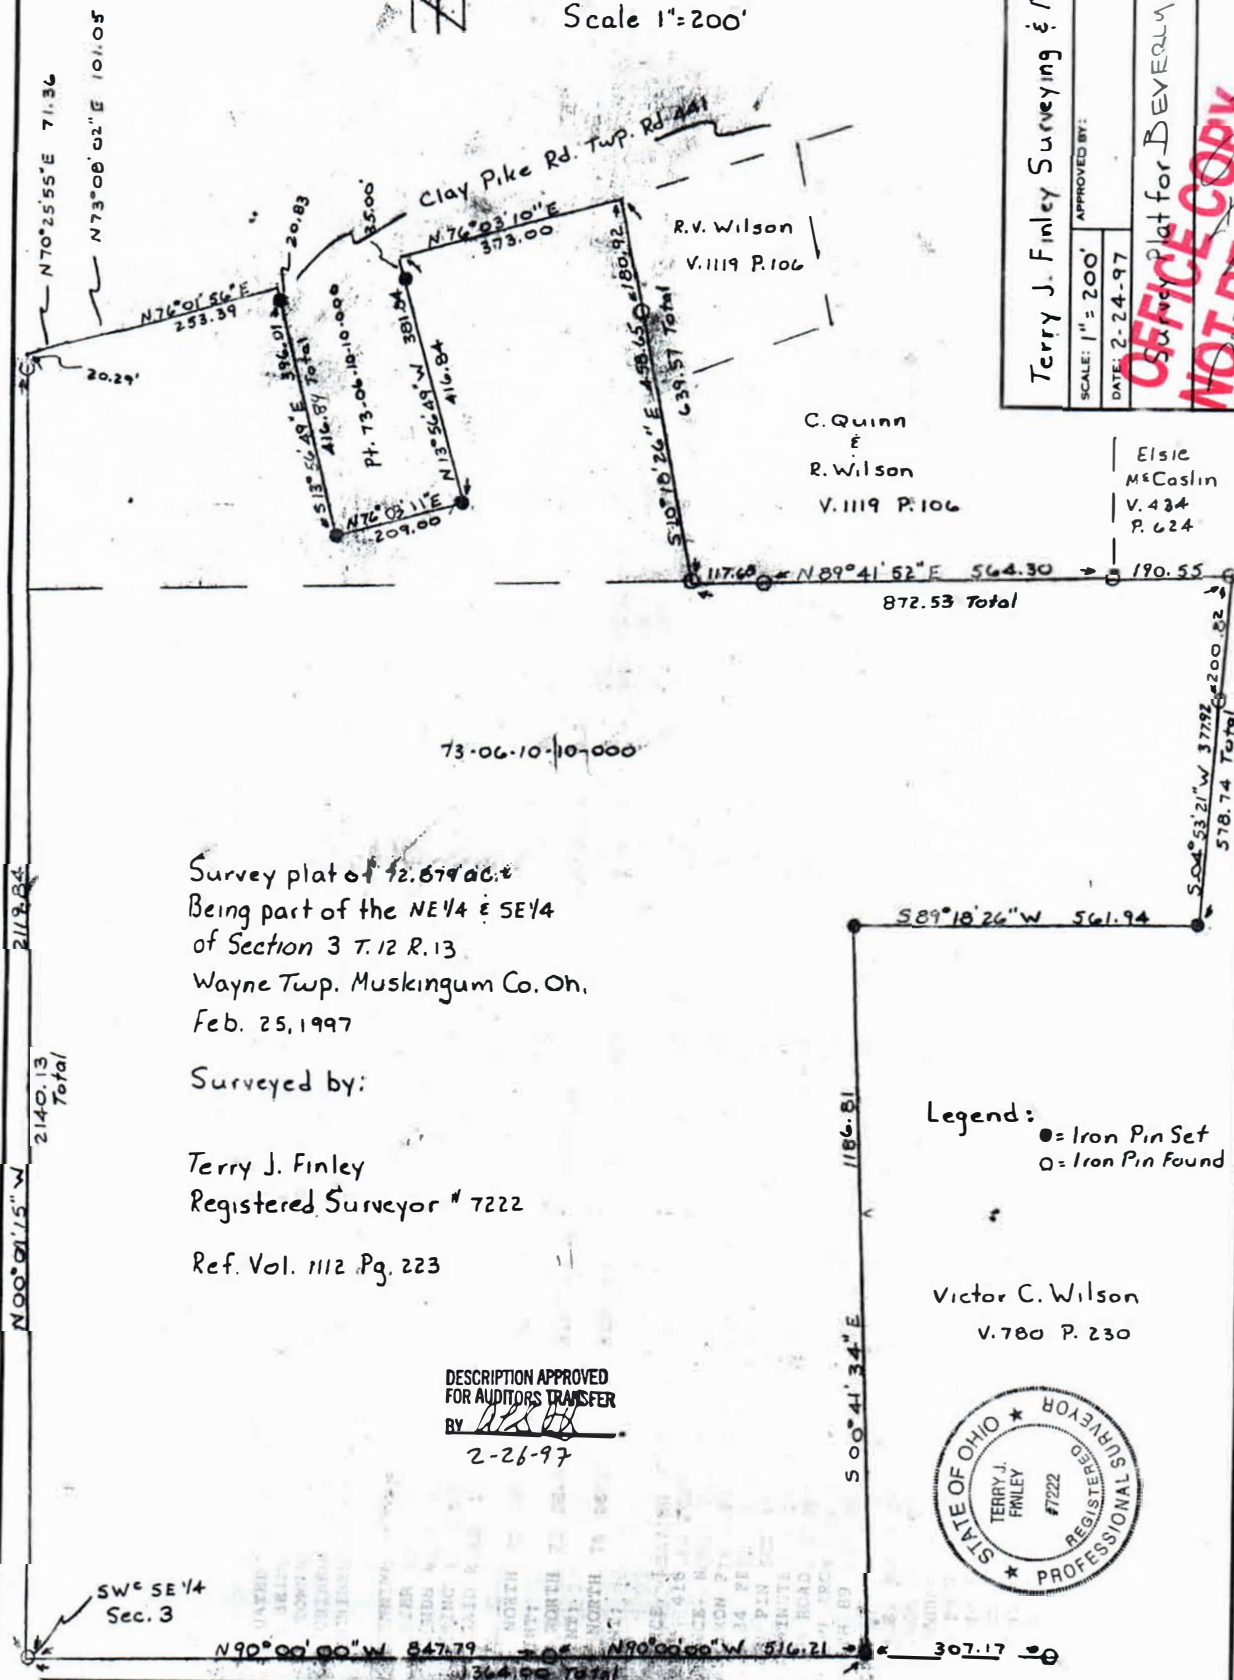 Scale 1"=200'
N70°25'55"E 71.36
N73°08'02"E 101.05
Terry J. Finley Surveying &
SCALE: 1" = 200'
APPROVED BY:
DATE: 2-24-97
Survey Plat for BEVERLY
OFFICE COPY
NOT
Clay Pike Rd. Twp. Rd 441
20.83
35.00'
N76°03'10"E
373.00
R.V. Wilson
V.1119 P.106
N76°01'56"E
253.39
20.29'
396.01
S13°56'49"E
416.84 Total
Pt. 73-06-10-10-000
381.84
N13°56'49"W
416.84
N76°03'11"E
209.00
180.92
S10°18'26"E 458.65
639.57 Total
C. Quinn
&
R. Wilson
V.1119 P.106
Elsie
McCaslin
V. 434
P. 624
117.68
N89°41'52"E 564.30
190.55
872.53 Total
200.82
S04°53'21"W 377.92
578.74 Total
73-06-10-10-000
Survey plat of 72.879 ac.±
Being part of the NE1/4 & SE1/4
of Section 3 T.12 R.13
Wayne Twp. Muskingum Co. Oh.
Feb. 25, 1997
Surveyed by:
Terry J. Finley
Registered Surveyor # 7222
Ref. Vol. 1112 Pg. 223
S89°18'26"W 561.94
2119.84
2140.13
Total
N00°01'15"W
1186.81
S00°41'34"E
Legend:
●= Iron Pin Set
O= Iron Pin Found
Victor C. Wilson
V.780 P. 230
DESCRIPTION APPROVED
FOR AUDITORS TRANSFER
BY
2-26-97
STATE OF OHIO
TERRY J.
FINLEY
#7222
REGISTERED
PROFESSIONAL SURVEYOR
SWc SE1/4
Sec. 3
N90°00'00"W 847.79
N90°00'00"W 516.21
307.17
1364.00 Total